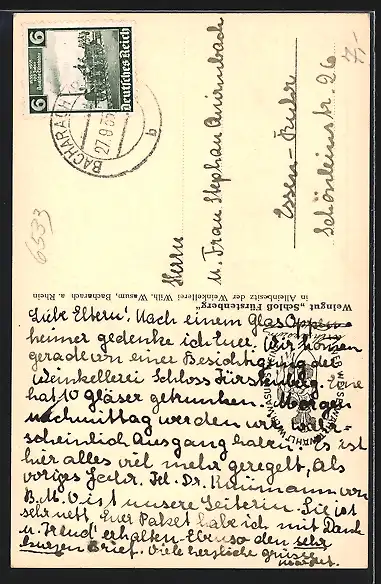 6
6
Deutsches Reich
BACHARACH
27.9.35
b
6533
Herrn
u. Frau Stephan
Essen-Ruhr
Schönleinstr. 26
Weingut „Schloß Fürstenberg"
in Alleinbesitz der Weinkellerei Wilh. Wasum, Bacharach a. Rhein
Liebe Eltern! Nach einem Glas Oppen-
heimer gedenke ich Euer. Wir kommen
gerade von einer Besichtigung der
Weinkellerei Schloss Fürstenberg. Eine
hat 10 Gläser getrunken. Morgen
nachmittag werden wir wahr-
scheinlich Ausgang haben. Es ist
hier alles viel mehr geregelt, als
voriges Jahr. Frl. Dr. Naumann von
B.M.V. ist unsere Leiterin. Sie ist
sehr nett. Euer Paket habe ich mit Dank
u. Freud' erhalten. Ebenso den sehr
kurzen Brief. Viele herzliche Grüsse